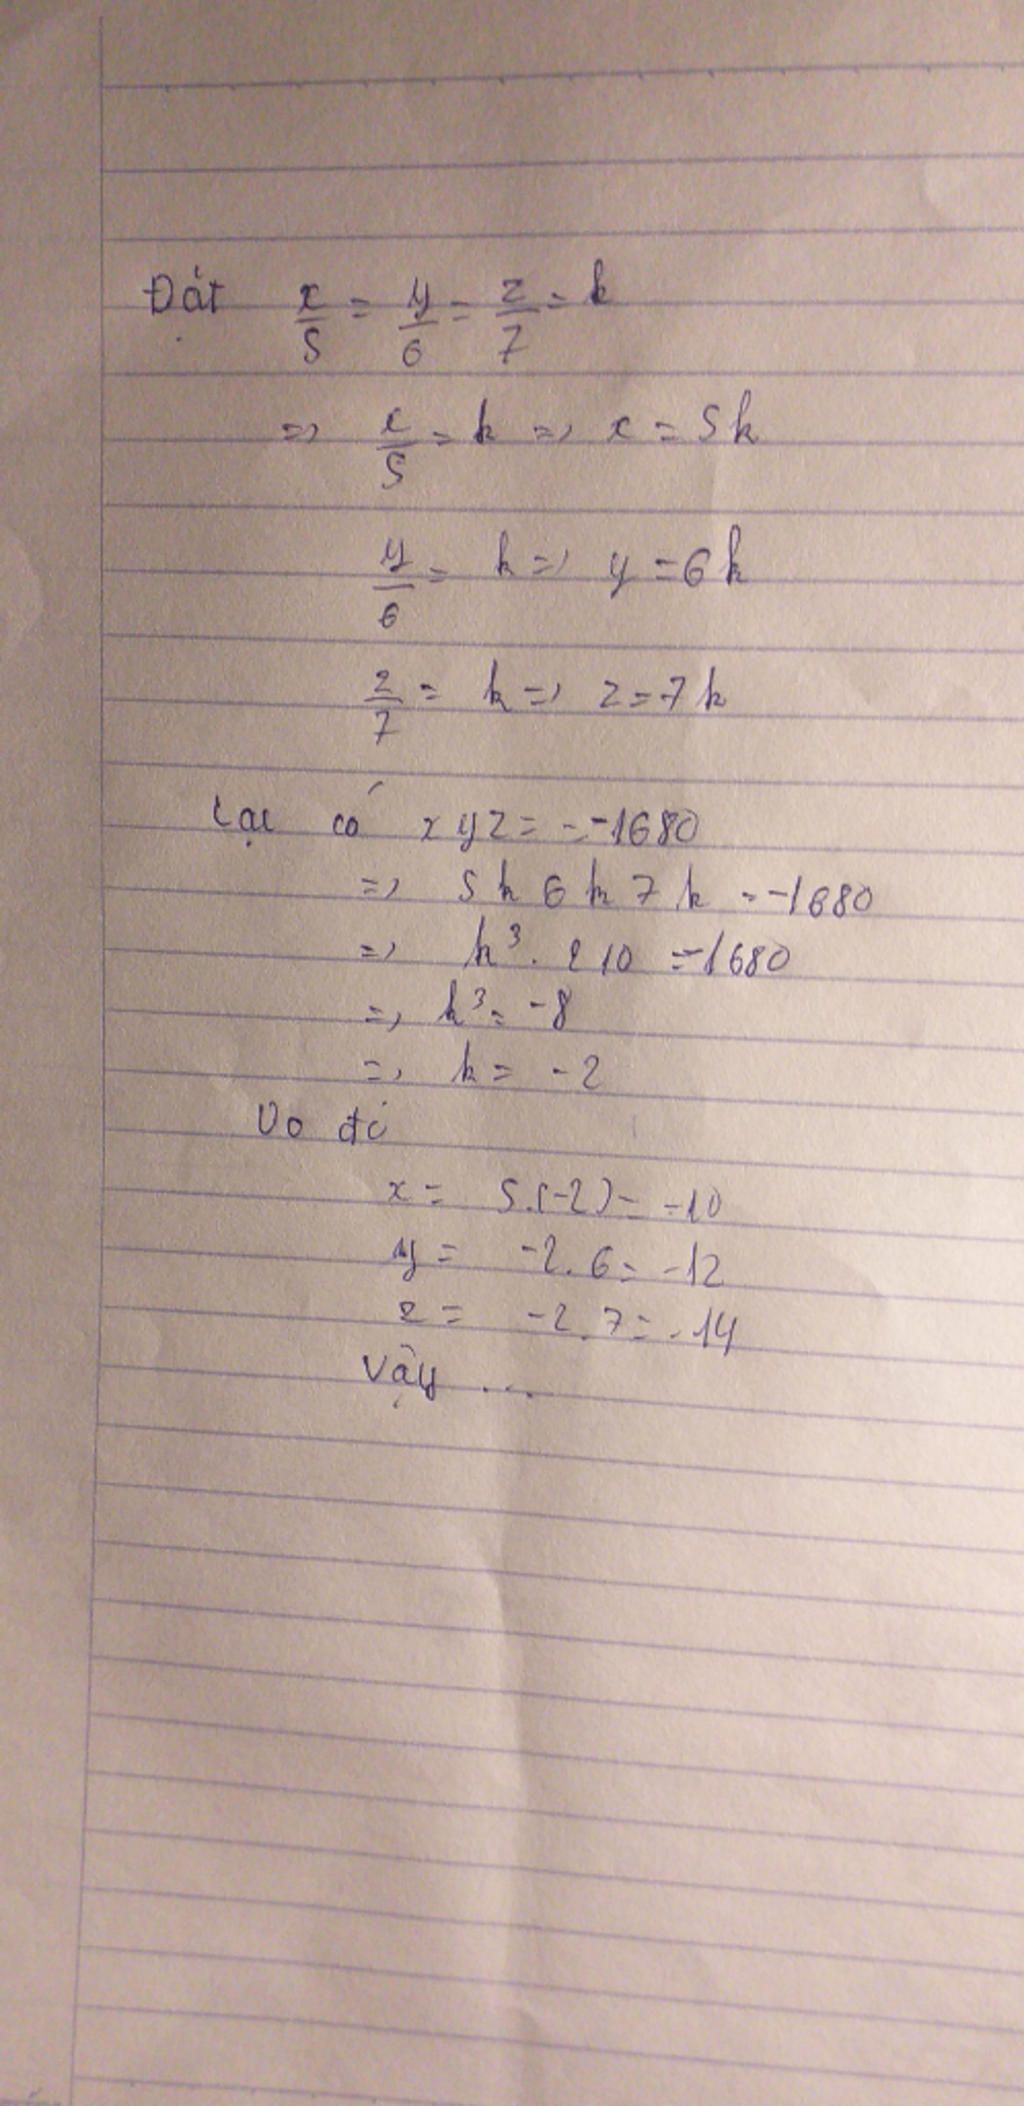 Đặt x/5 = y/6 = z/7 = k
=> x/5 = k => x = 5k
y/6 = k => y = 6k
z/7 = k => z = 7k
Lại có xyz = -1680
=> 5k 6k 7k = -1680
=> k³ . 210 = -1680
=> k³ = -8
=> k = -2
Do đó
x = 5.(-2) = -10
y = -2.6 = -12
z = -2.7 = -14
Vậy ...